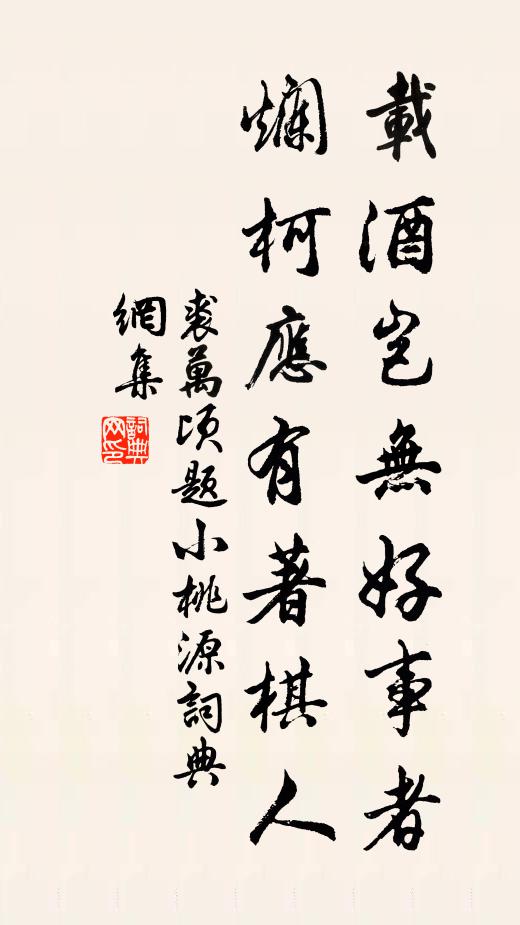 載酒豈無好事者
爛柯應有著棋人
裘萬頃題小桃源詞典
網集
詞典
网印